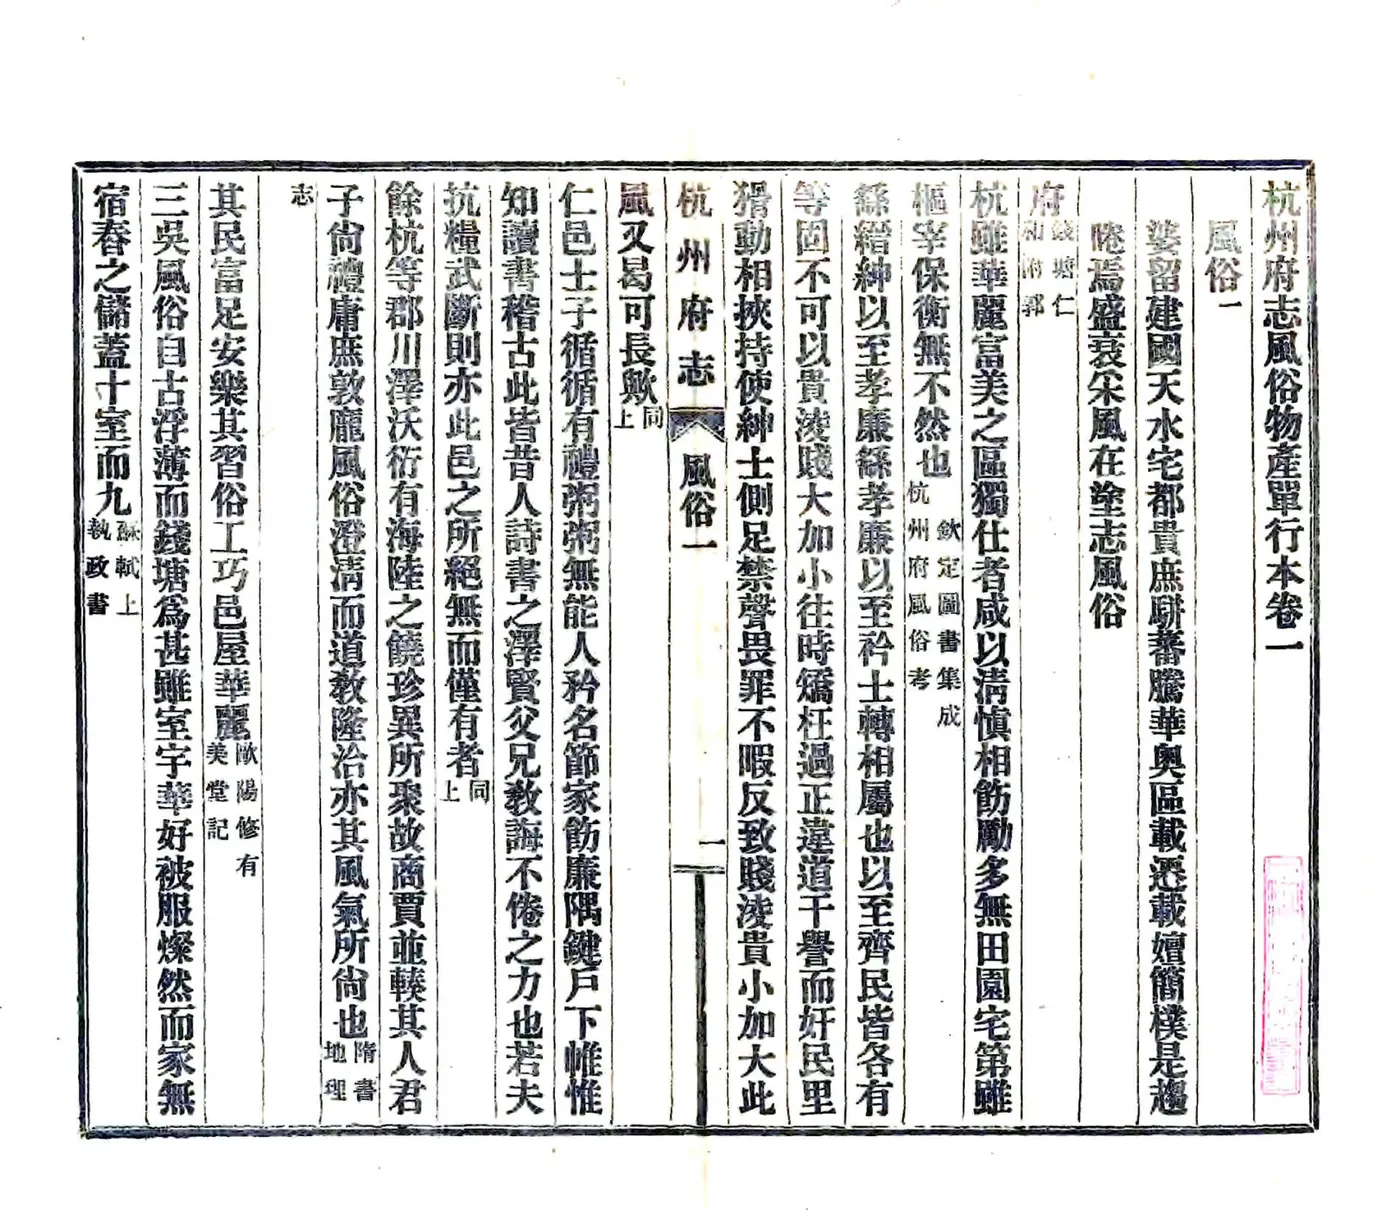 杭州府志風俗物產單行本卷一
風俗一
婺留建國天水宅都貴庶駢蕃騰華奧區載遷載嬗簡樸是趨
睠焉盛衰采風在塗志風俗
府錢塘仁和附郭
杭雖華麗富美之區獨仕者咸以淸愼相飭勵多無田園宅第雖
樞宰保衡無不然也欽定圖書集成杭州府風俗考
繇縉紳以至孝廉繇孝廉以至衿士轉相屬也以至齊民皆各有
等固不可以貴淩賤大加小往時矯枉過正違道干譽而奸民里
猾動相挾持使紳士側足禁聲畏罪不暇反致賤淩貴小加大此
杭州府志 風俗一 一
風又曷可長歟同上
仁邑士子循循有禮粥粥無能人矜名節家飭廉隅鍵戶下帷惟
知讀書稽古此皆昔人詩書之澤賢父兄敎誨不倦之力也若夫
抗糧武斷則亦此邑之所絕無而僅有者同上
餘杭等郡川澤沃衍有海陸之饒珍異所聚故商賈並輳其人君
子尙禮庸庶敦龐風俗澄淸而道敎隆洽亦其風氣所尙也隋書地理
志
其民富足安樂其習俗工巧邑屋華麗歐陽修有美堂記
三吳風俗自古浮薄而錢塘爲甚雖室宇華好被服燦然而家無
宿舂之儲蓋十室而九蘇軾上執政書